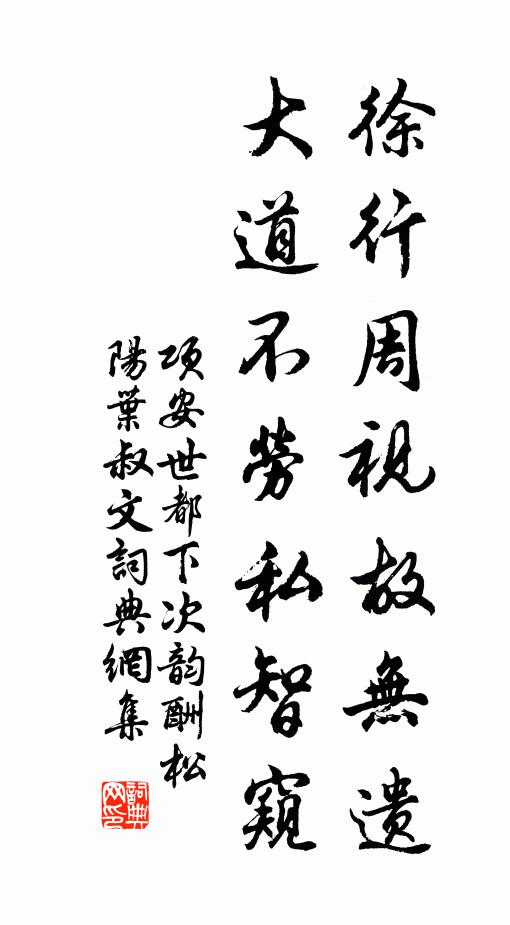 徐行周視故無遺
大道不勞私智窺
項安世都下次韵酬松
陽葉叔文詞典網集
詞典
网印